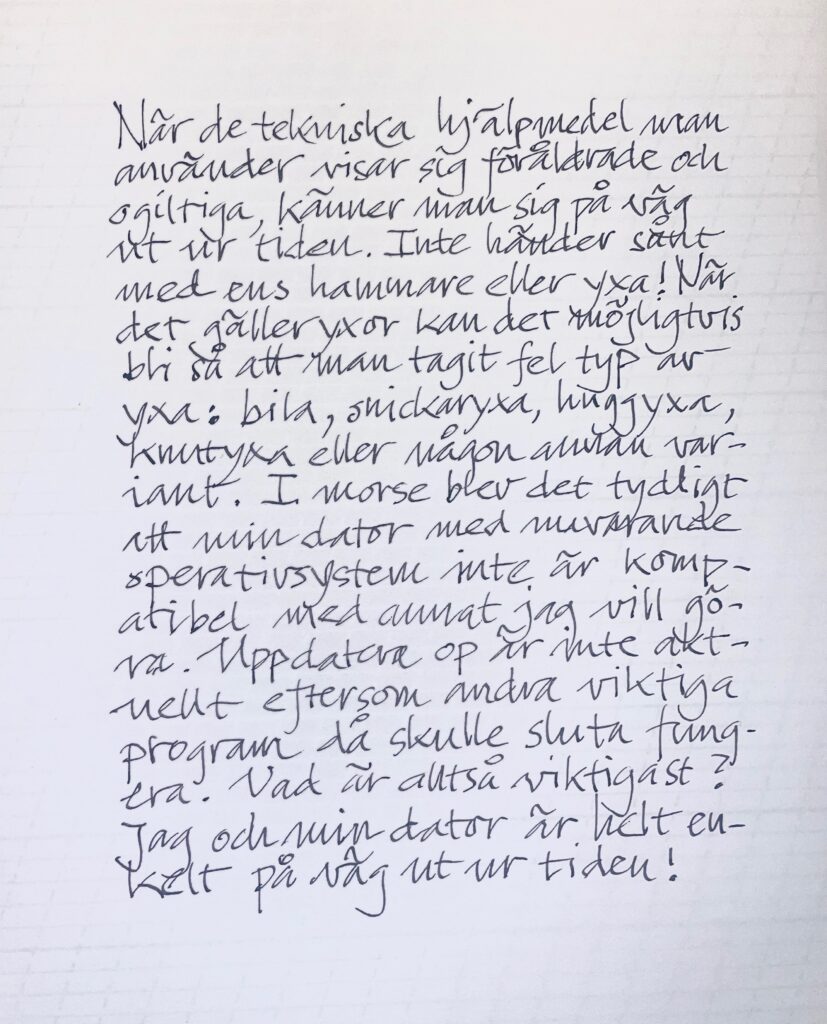 När de tekniska hjälpmedel man
använder visar sig föråldrade och
ogiltiga, känner man sig på väg
ut ur tiden. Inte händer sånt
med ens hammare eller yxa! När
det gäller yxor kan det möjligtvis
bli så att man tagit fel typ av
yxa: bila, snickaryxa, huggyxa,
knutyxa eller någon annan var-
iant. I morse blev det tydligt
att min dator med nuvarande
operativsystem inte är komp-
atibel med annat jag vill gö-
ra. Uppdatera op är inte akt-
uellt eftersom andra viktiga
program då skulle sluta fung-
era. Vad är alltså viktigast?
Jag och min dator är helt en-
kelt på väg ut ur tiden!